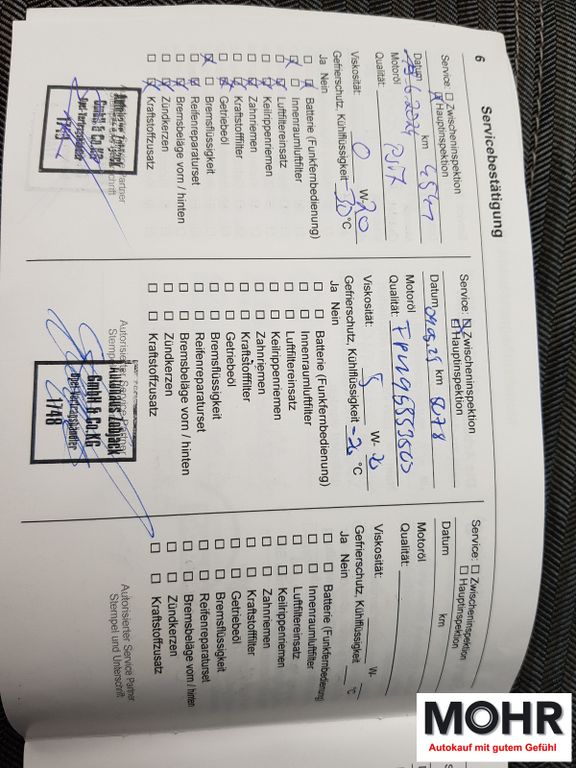 6
Servicebestätigung
Service: Zwischeninspektion
Hauptinspektion
Datum km
Motoröl
Qualität:
Viskosität: 0 W- 20
Gefrierschutz, Kühlflüssigkeit -30 °C
Ja Nein
Batterie (Funkfernbedienung)
Innenraumluftfilter
Luftfiltereinsatz
Keilrippenriemen
Zahnriemen
Kraftstofffilter
Getriebeöl
Bremsflüssigkeit
Reifenreparaturset
Bremsbeläge vorn / hinten
Zündkerzen
Kraftstoffzusatz
GmbH & Co.KG
Opel Vertragshändler
1748
Service: Zwischeninspektion
Hauptinspektion
Datum km
Motoröl
Qualität:
Viskosität: W- 20
Gefrierschutz, Kühlflüssigkeit °C
Ja Nein
Batterie (Funkfernbedienung)
Innenraumluftfilter
Luftfiltereinsatz
Keilrippenriemen
Zahnriemen
Kraftstofffilter
Getriebeöl
Bremsflüssigkeit
Reifenreparaturset
Bremsbeläge vorn / hinten
Zündkerzen
Kraftstoffzusatz
Autorisierter Service Partner
Autohaus Zobjack
GmbH & Co.KG
Opel Vertragshändler
1748
Service: Zwischeninspektion
Hauptinspektion
Datum km
Motoröl
Qualität:
Viskosität: W-
Gefrierschutz, Kühlflüssigkeit °C
Ja Nein
Batterie (Funkfernbedienung)
Innenraumluftfilter
Luftfiltereinsatz
Keilrippenriemen
Zahnriemen
Kraftstofffilter
Getriebeöl
Bremsflüssigkeit
Reifenreparaturset
Bremsbeläge vorn / hinten
Zündkerzen
Kraftstoffzusatz
Autorisierter Service Partner
Stempel und Unterschrift
MOHR
Autokauf mit gutem Gefühl